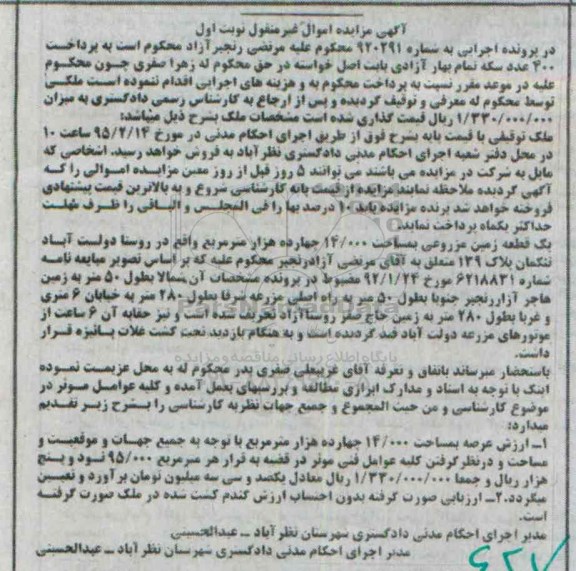 آگهی مزایده اموال غیرمنقول نوبت اول
در پرونده اجرایی به شماره ۹۲۰۲۹۱ محکوم علیه مرتضی رنجبرآزاد محکوم است به پرداخت
۴۰۰ عدد سکه تمام بهار آزادی بابت اصل خواسته در حق محکوم له زهرا صفری چون محکوم
علیه در موعد مقرر نسبت به پرداخت محکوم به و هزینه های اجرایی اقدام ننموده است ملکی
توسط محکوم له معرفی و توقیف گردیده و پس از ارجاع به کارشناس رسمی دادگستری به میزان
۱/۳۳۰/۰۰۰/۰۰۰ ریال قیمت گذاری شده است مشخصات ملک بشرح ذیل میباشد:
ملک توقیفی با قیمت پایه بشرح فوق از طریق اجرای احکام مدنی در مورخ ۹۵/۲/۱۴ ساعت ۱۰
در محل دفتر شعبه اجرای احکام مدنی دادگستری نظرآباد به فروش خواهد رسید. اشخاصی که
مایل به شرکت در مزایده می باشند می توانند ۵ روز قبل از روز معین مزایده اموالی را که
آگهی گردیده ملاحظه نمایند مزایده از قیمت پایه کارشناسی شروع و به بالاترین قیمت پیشنهادی
فروخته خواهد شد برنده مزایده باید ۱۰ درصد بها را فی المجلس و الباقی را ظرف مهلت
حداکثر یکماه پرداخت نماید.
یک قطعه زمین مزروعی بمساحت ۱۴/۰۰۰ چهارده هزار مترمربع واقع در روستا دولت آباد
تنکمان پلاک ۱۳۹ متعلق به آقای مرتضی آزادرنجبر محکوم علیه که بر اساس تصویر مبایعه نامه
شماره ۶۲۱۸۸۳۱ مورخ ۹۲/۱/۲۴ مضبوط در پرونده مشخصات آن شمالا بطول ۵۰ متر به زمین
هاجر آزاررنجبر جنوبا بطول ۵۰ متر به راه اصلی مزرعه شرقا بطول ۲۸۰ متر به خیابان ۶ متری
و غربا بطول ۲۸۰ متر به زمین حاج قنبر روستا آزاد تعریف شده است و نیز حقابه آن ۶ ساعت از
موتورهای مزرعه دولت آباد قید گردیده است و به هنگام بازدید تحت کشت غلات پائیزه قرار
داشت.
باستحضار میرساند باتفاق و تعرفه آقای غریبعلی صفری پدر محکوم له به محل عزیمت نموده
اینک با توجه به اسناد و مدارک ابرازی مطالعه و بررسیهای بعمل آمده و کلیه عوامل موثر در
موضوع کارشناسی و من حیث المجموع و جمیع جهات نظریه کارشناسی را بشرح زیر تقدیم
میدارد:
۱ـ ارزش عرصه بمساحت ۱۴/۰۰۰ چهارده هزار مترمربع با توجه به جمیع جهات و موقعیت و
مساحت و درنظرگرفتن کلیه عوامل فنی موثر در قضیه به قرار هر مترمربع ۹۵/۰۰۰ نود و پنج
هزار ریال و جمعا ۱/۳۳۰/۰۰۰/۰۰۰ ریال معادل یکصد و سی سه میلیون تومان برآورد و تعیین
میگردد.۲ـ ارزیابی صورت گرفته بدون احتساب ارزش گندم کشت شده در ملک صورت گرفته
است.
مدیر اجرای احکام مدنی دادگستری شهرستان نظرآباد ــ عبدالحسینی
مدیر اجرای احکام مدنی دادگستری شهرستان نظرآباد ــ عبدالحسینی
پایگاه اطلاع رسانی مناقصه و مزایده